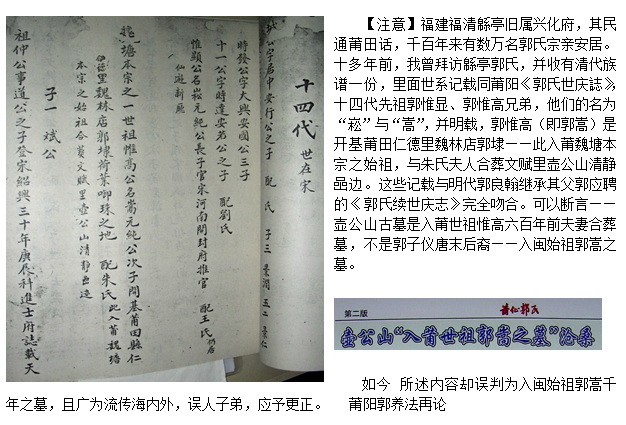 十四代 世在宋
城公字居中安行公之子 配 氏 子三 景潤 五二 景仁
時發公字大興安國公三子
十一公字時達安若公之子 配劉氏
惟顯公名崧元純公長子官宋河南開封府推官 配王氏 仍居
仙遊新厝
魏塘本宗之一世祖惟高公名嵩元純公次子開基莆田縣仁
德里魏林店郭埭荷葉唧珠之地 配朱氏 此入莆魏塘
本宗之始祖合葬文賦里壺公山清靜邑邊
子一 斌公
祖仲公事道公之子登宋紹興三十年庚辰科進士府誌載天
【注意】福建福清觞亭旧属兴化府，其民
通莆田话，千百年来有数万名郭氏宗亲安居。
十多年前，我曾拜访觞亭郭氏，并收有清代族
谱一份，里面世系记载同莆阳《郭氏世庆誌》，
十四代先祖郭惟显、郭惟高兄弟，他们的名为
“崧”与“嵩”，并明载，郭惟高（即郭嵩）是
开基莆田仁德里魏林店郭埭——此入莆魏塘本
宗之始祖，与朱氏夫人合葬文赋里壶公山清静
邑边。这些记载与明代郭良翰继承其父郭应聘
的《郭氏续世庆志》完全吻合。可以断言——
壶公山古墓是入莆世祖惟高六百年前夫妻合葬
墓，不是郭子仪唐末后裔——入闽始祖郭嵩之
墓。
第二版
莆仙郭氏
壶公山“入莆世祖郭嵩之墓”沧桑
如今 所述内容却误判为入闽始祖郭嵩千
年之墓，且广为流传海内外，误人子弟，应予更正。 莆阳郭养法再论